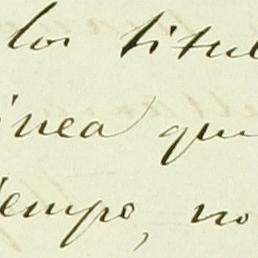 los titul
inea que
iempo, no